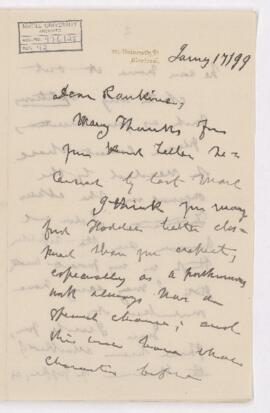 McGILL UNIVERSITY
ARCHIVES
ACC. NO.
REF. 42
University St
Montreal.
Jany 17/99
Dear Rankine,
Many thanks for
your kind letter re-
ceived by last mail
I think you may
find Hodder better dis-
posed than you expect,
especially as a posthumous
work always has an
special chance; and
this one have those
characters before